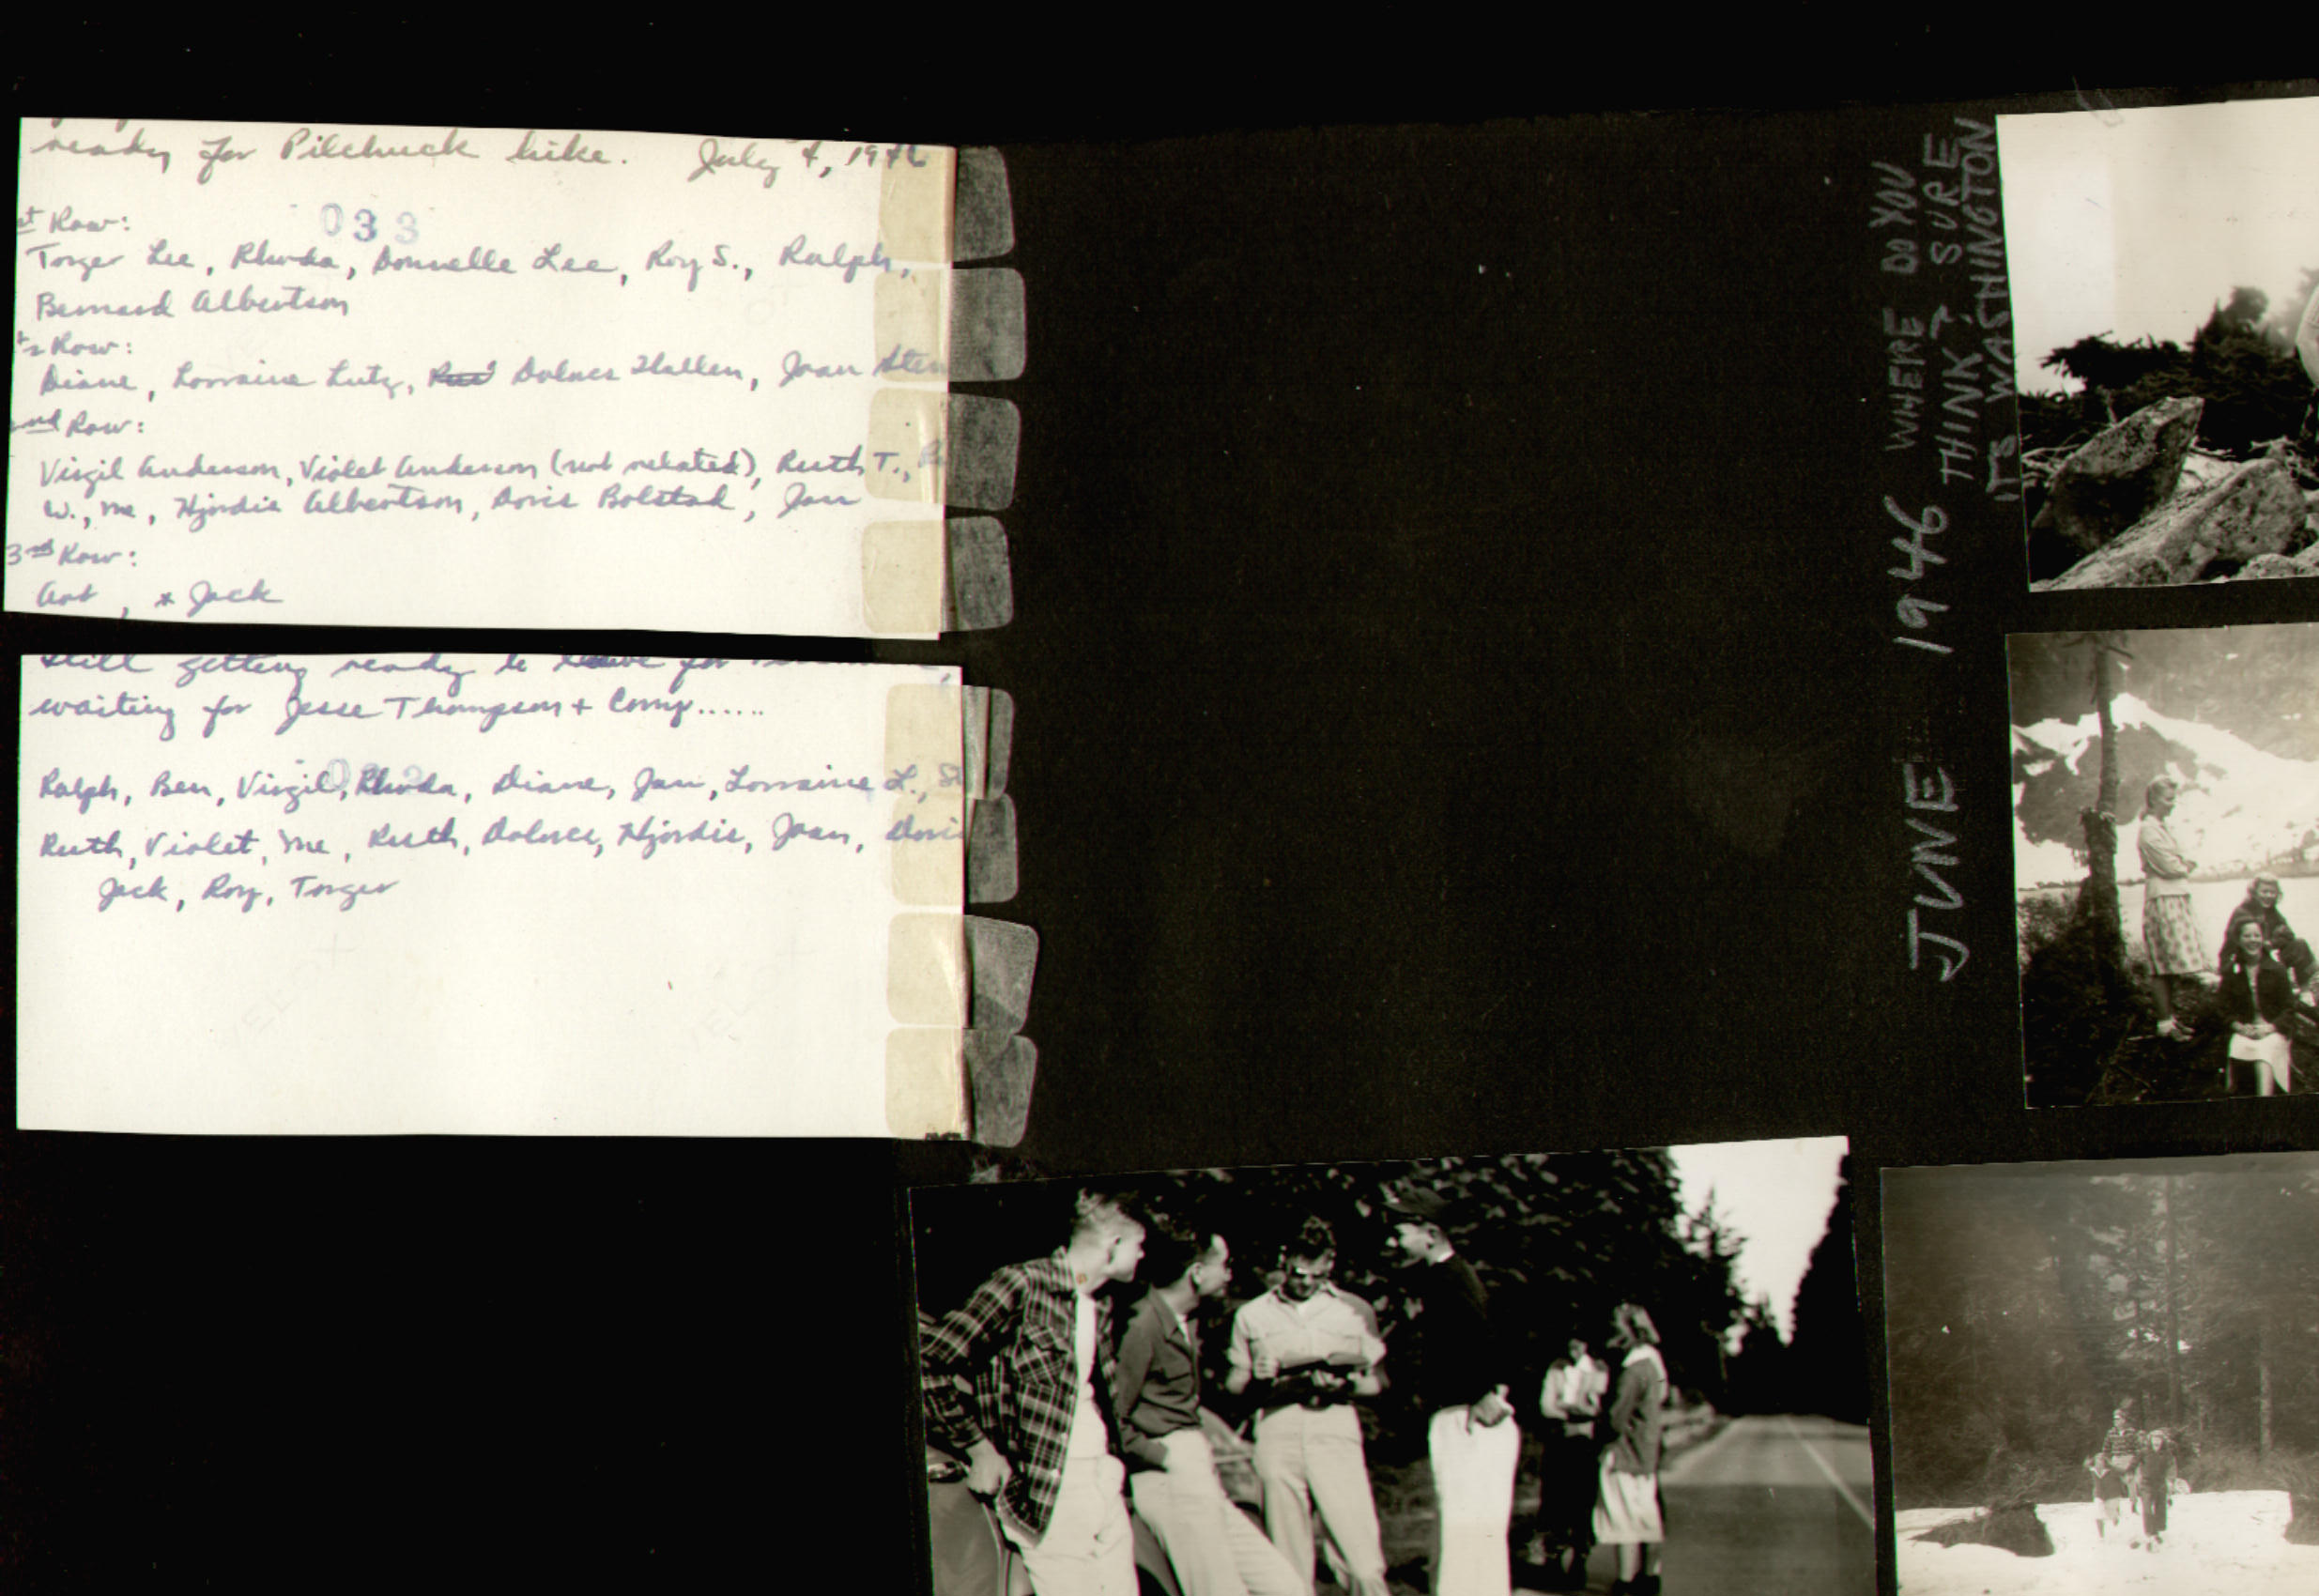 ready for Pilchuck hike. July 4, 1946
033
st Row:
Torger Lee, Rhoda, Donnelle Lee, Roy S., Ralph,
Bernard Albertson
Row:
Diane, Lorraine Lutz, Dolores Hallen, Joan Sten
nd Row:
Virgil Anderson, Violet Anderson (not related), Ruth T.,
W., me, Hjordis Albertson, Doris Bolstad, Jan
3rd Row:
Art, + Jack
still getting ready to leave for
waiting for Jesse Thompson + Comp......
Ralph, Ben, Virgil, Rhoda, Diane, Jan, Lorraine L.,
Ruth, Violet, me, Ruth, Dolores, Hjordis, Joan, Doris
Jack, Roy, Torger
VELOX
VELOX
JUNE 1946
WHERE DO YOU
THINK? SURE
ITS WASHINGTON